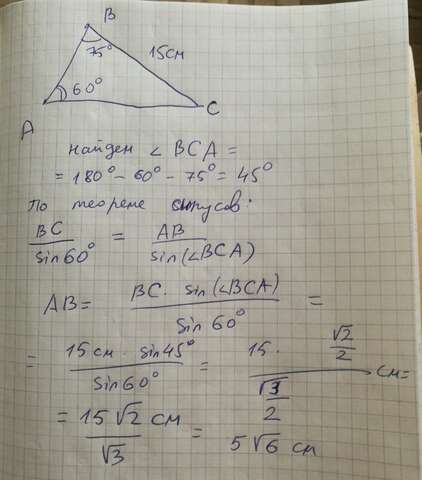 B
75° 15см
60°
A C
найдем ∠ BCA =
= 180° - 60° - 75° = 45°
По теореме синусов:
BC/sin60° = AB/sin(∠BCA)
AB = BC · sin(∠BCA)/sin 60° =
= 15 см · sin45°/sin60° = 15 · √2/2 / √3/2 см =
= 15√2 см/√3 = 5√6 см